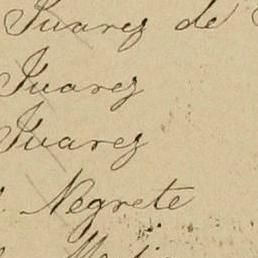 Juarez de
Juarez
Juarez
Negrete